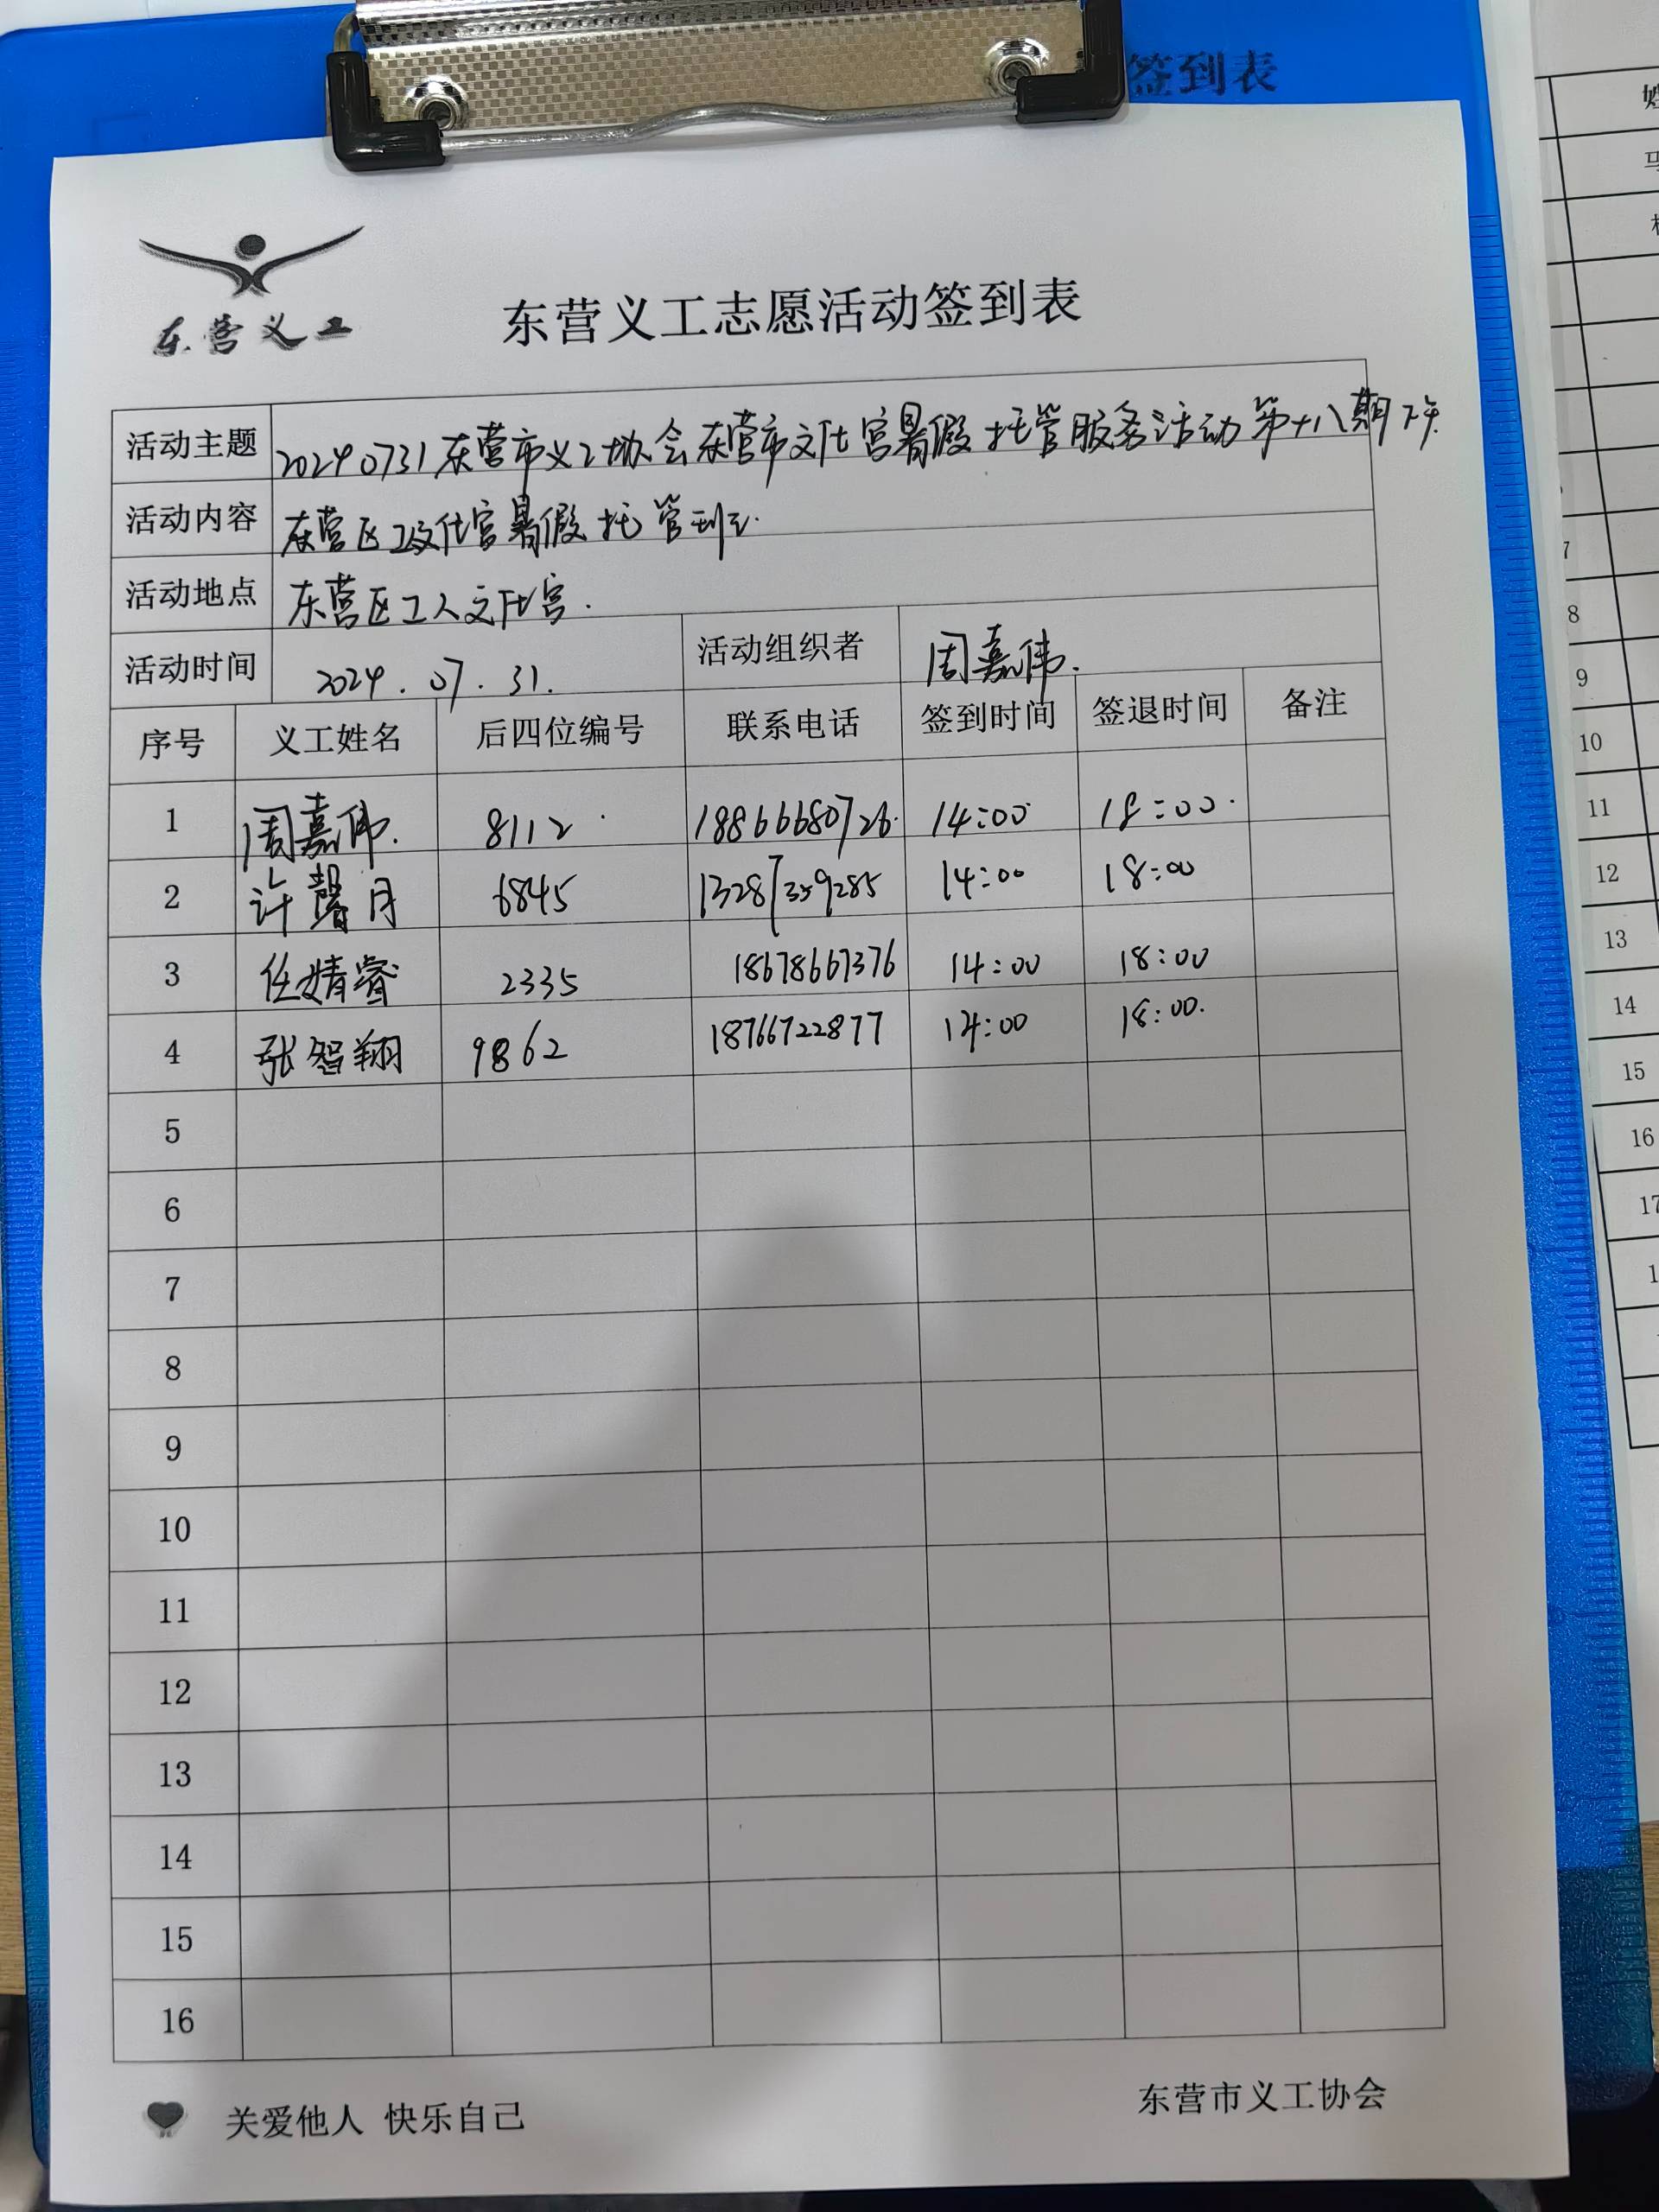 签到表
东营义工
东营义工志愿活动签到表
活动主题 20240731东营市义工协会东营市文化宫暑假托管服务活动第十八期下午
活动内容 东营区工文化宫暑假托管
活动地点 东营区工人文化宫.
活动时间 2024.07.31. 活动组织者 周嘉伟.
序号 义工姓名 后四位编号 联系电话 签到时间 签退时间 备注
1 周嘉伟. 8112 18866680726. 14:00 18:00.
2 许馨月 6845 13287359285 14:00 18:00
3 任婧睿 2335 18678667376 14:00 18:00
4 张智翔 9862 18766722877 14:00 18:00.
5
6
7
8
9
10
11
12
13
14
15
16
关爱他人 快乐自己
东营市义工协会
7
8
9
10
11
12
13
14
15
16